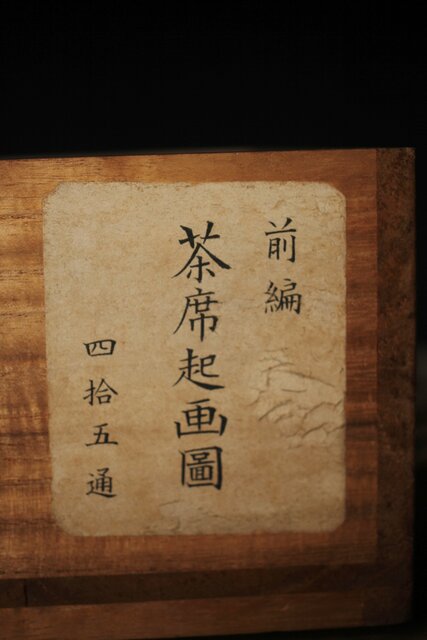 前編
茶席起画圖
四拾五通